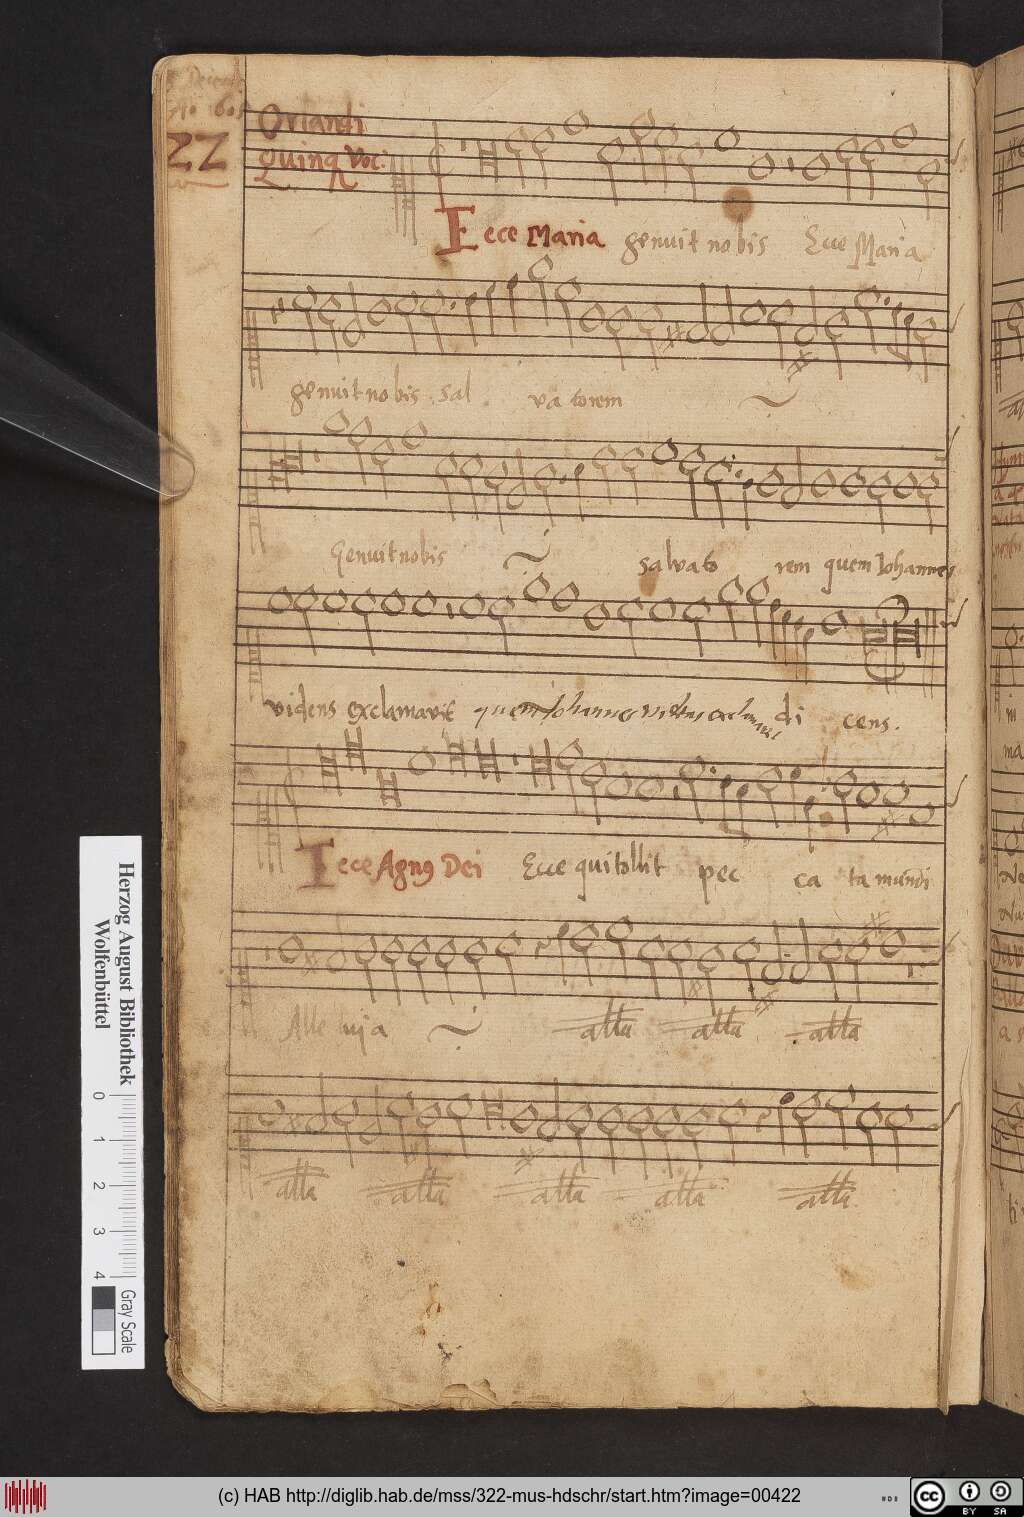 22
Orlandi
Quinq Voc:
Ecce Maria genuit nobis Ecce Maria
genuit nobis sal va torem
Genuit nobis salvato rem quem Iohannes
videns exclamavit quem Johannes videns exclamavit di cens.
Ecce Agnq Dei Ecce qui tollit pec ca ta mundi
Alle luja alla alla alla
alla alla alla alla alla
Herzog August Bibliothek
Wolfenbüttel
0 1 2 3 4
Gray Scale
(c) HAB http://diglib.hab.de/mss/322-mus-hdschr/start.htm?image=00422
cc BY SA